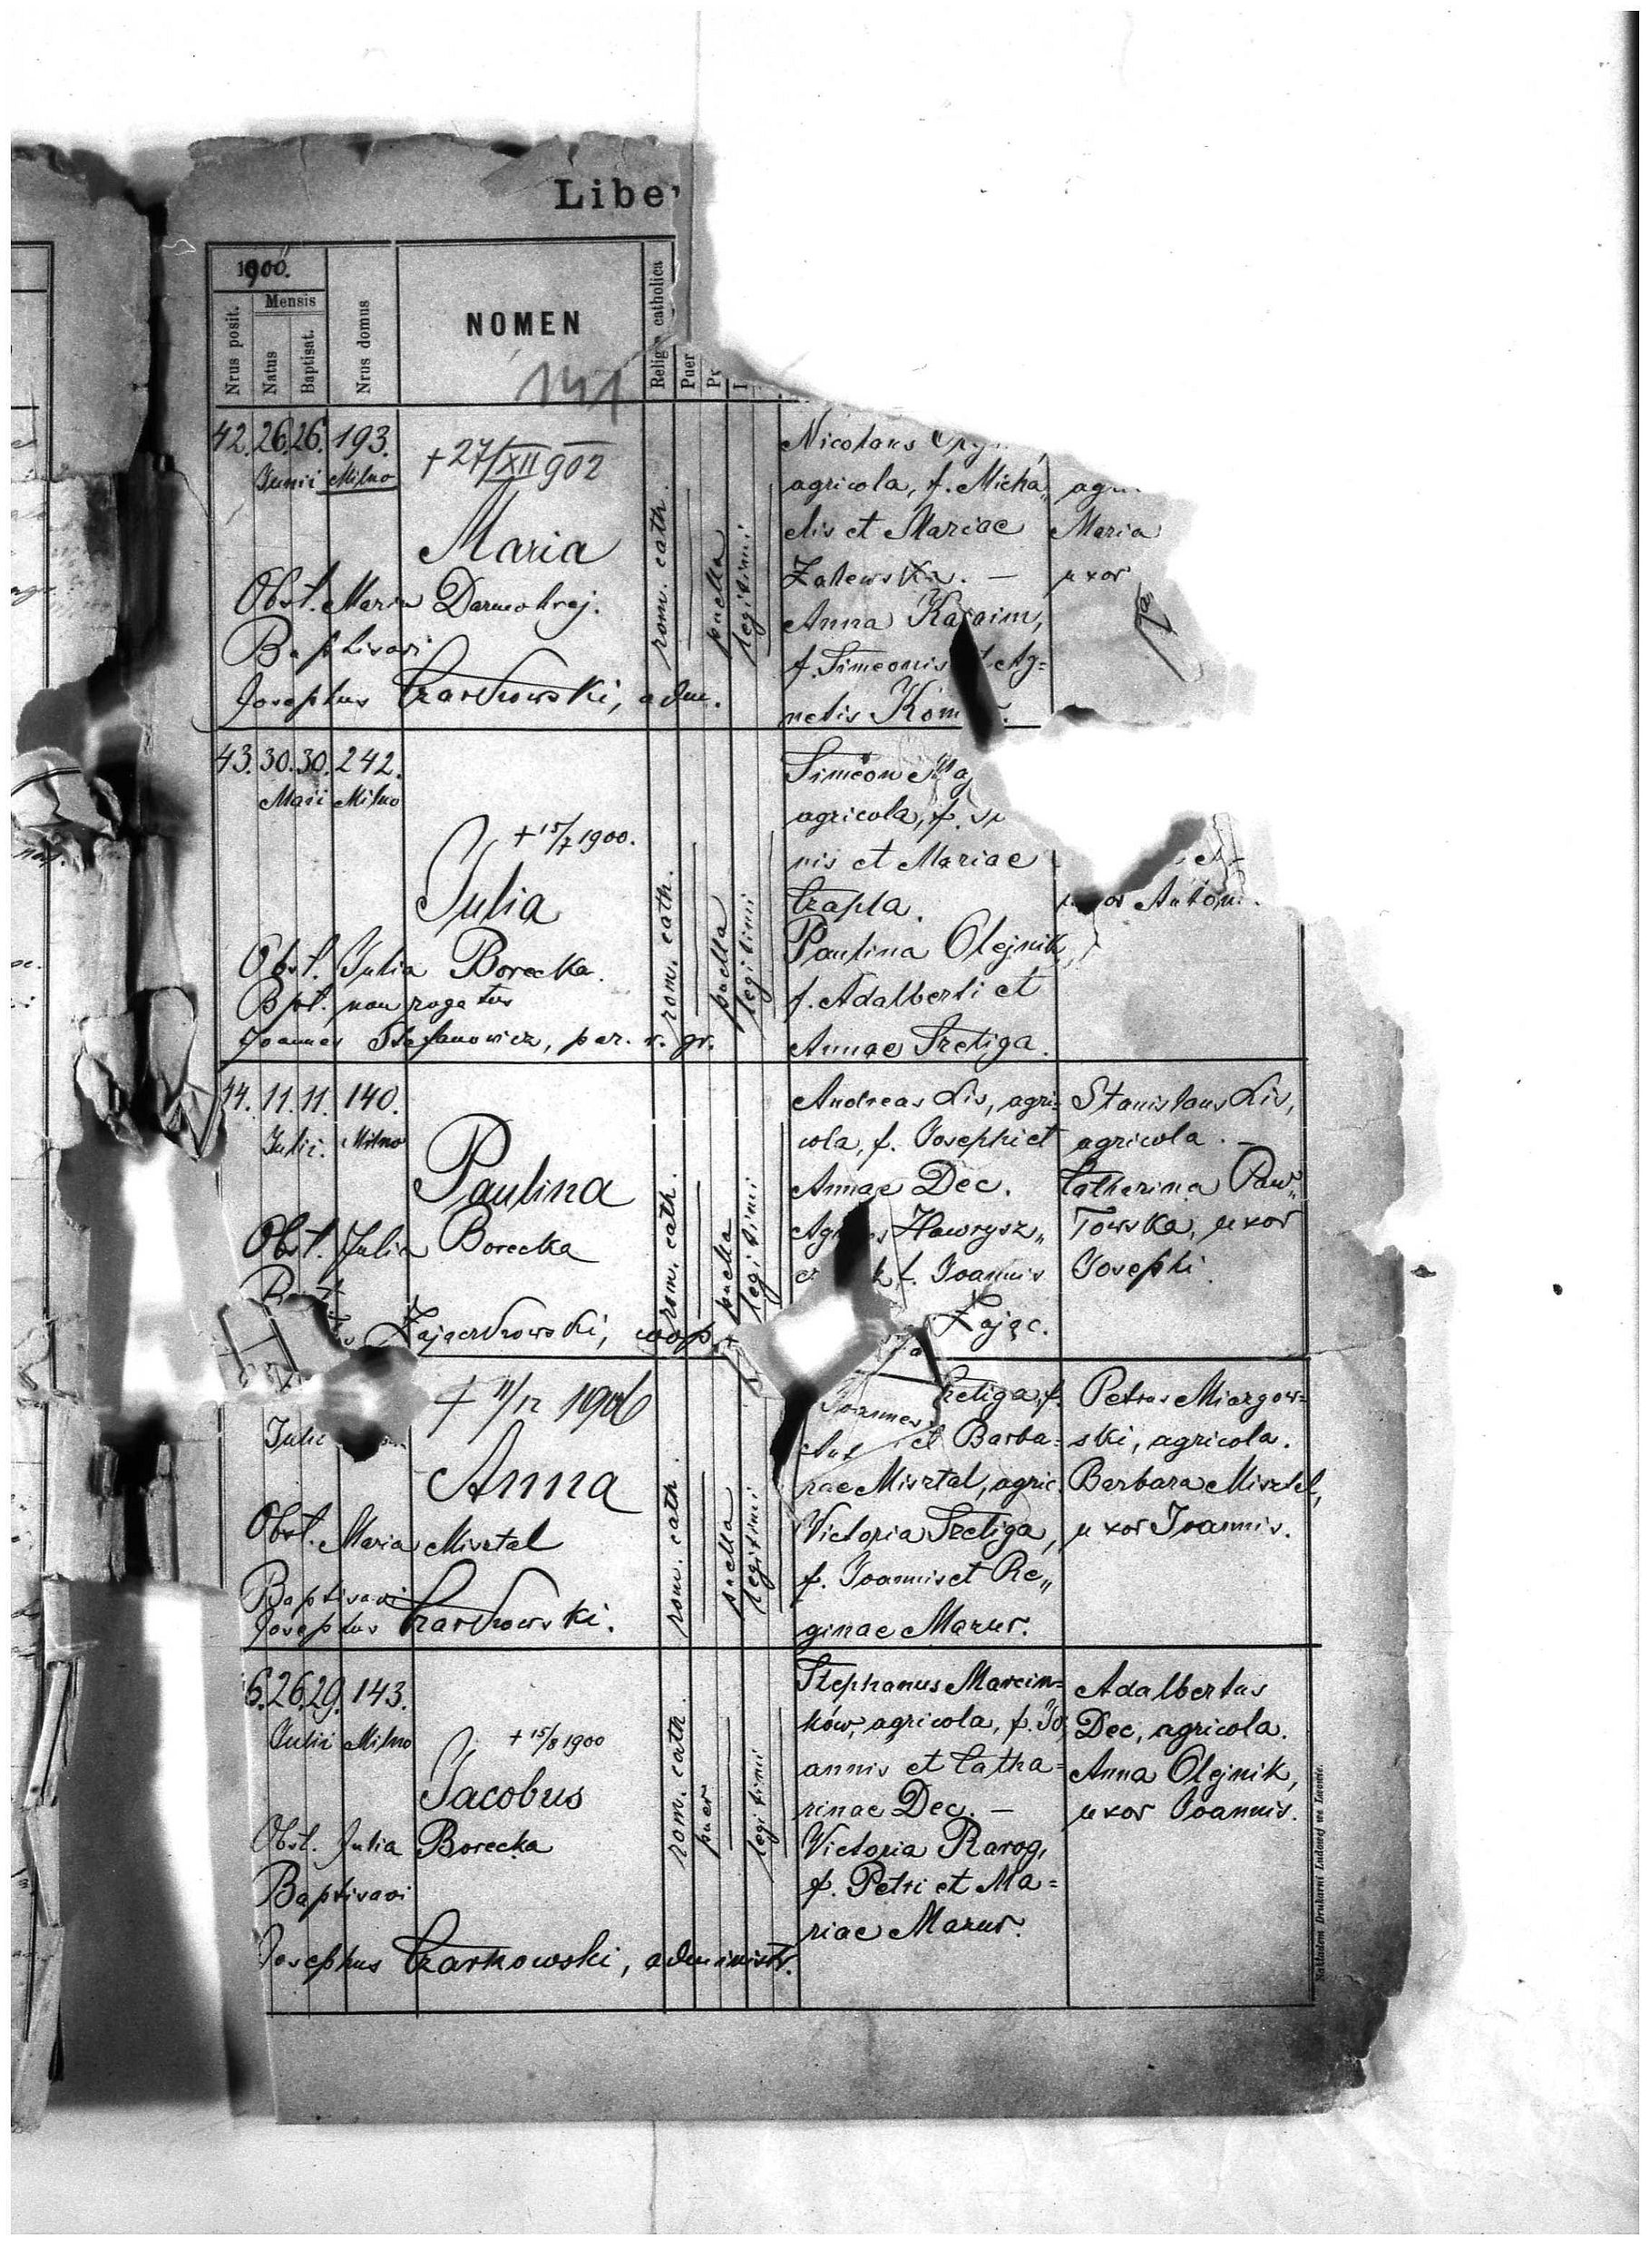 Liber
1900.
Nrus posit.
Mensis
Natus
Baptisat.
Nrus domus
NOMEN
Religio catholica
Puer
141
42. 26. 26. 193.
Junii Milno
+ 27/XII 902
Maria
Obst. Maria Darmohraj.
Baptisavi
Josephus Czarkowski, adm.
rom. cath.
puella
legitimi
Nicolaus
agricola, f. Micha„
elis et Mariae
Zalewska. —
Anna Karaim,
f. Simeonis et Ag=
netis
Maria
uxor
43. 30. 30. 242.
Maii Milno
+ 15/7 1900.
Julia
Obst. Julia Borecka.
Bpt. non rogatus
Joannes Stefanowicz, par. r. gr.
rom. cath.
puella
legitimi
Simeon
agricola, f.
nis et Mariae
Czapla.
Paulina Olejnik,
f. Adalberti et
Annae Szeliga.
uxor Antoni
44. 11. 11. 140.
Julii. Milno
Paulina
Obst. Julia Borecka
Zajączkowski, coop.
rom. cath.
puella
legitimi
Andreas Lis, agri=
cola, f. Josephi et
Annae Dec.
Agnes Hawrysz„
f. Joannis
Zając.
Stanislaus Lis,
agricola. —
Catharina Paw„
łowska, uxor
Josephi.
Julii
+ 11/12 1906
Anna
Obst. Maria Misztal
Baptisavi
Josephus Czarkowski.
rom. cath.
puella
legitimi
Joannes Szeliga, f.
et Barba=
rae Misztal, agric.
Victoria Szeliga,
f. Joannis et Re„
ginae Mazur.
Petrus Miazgow=
ski, agricola.
Barbara Misztal,
uxor Joannis.
6. 26. 29. 143.
Julii Milno
+ 15/8 1900
Jacobus
Obst. Julia Borecka
Baptisavi
Josephus Czarkowski, administr.
rom. cath.
puer
legitimi
Stephanus Marcin=
ków, agricola, f. Jo„
annis et Catha=
rinae Dec. —
Victoria Rarog,
f. Petri et Ma=
riae Mazur.
Adalbertus
Dec, agricola.
Anna Olejnik,
uxor Joannis.
Nakładem Drukarni Ludowej we Lwowie.